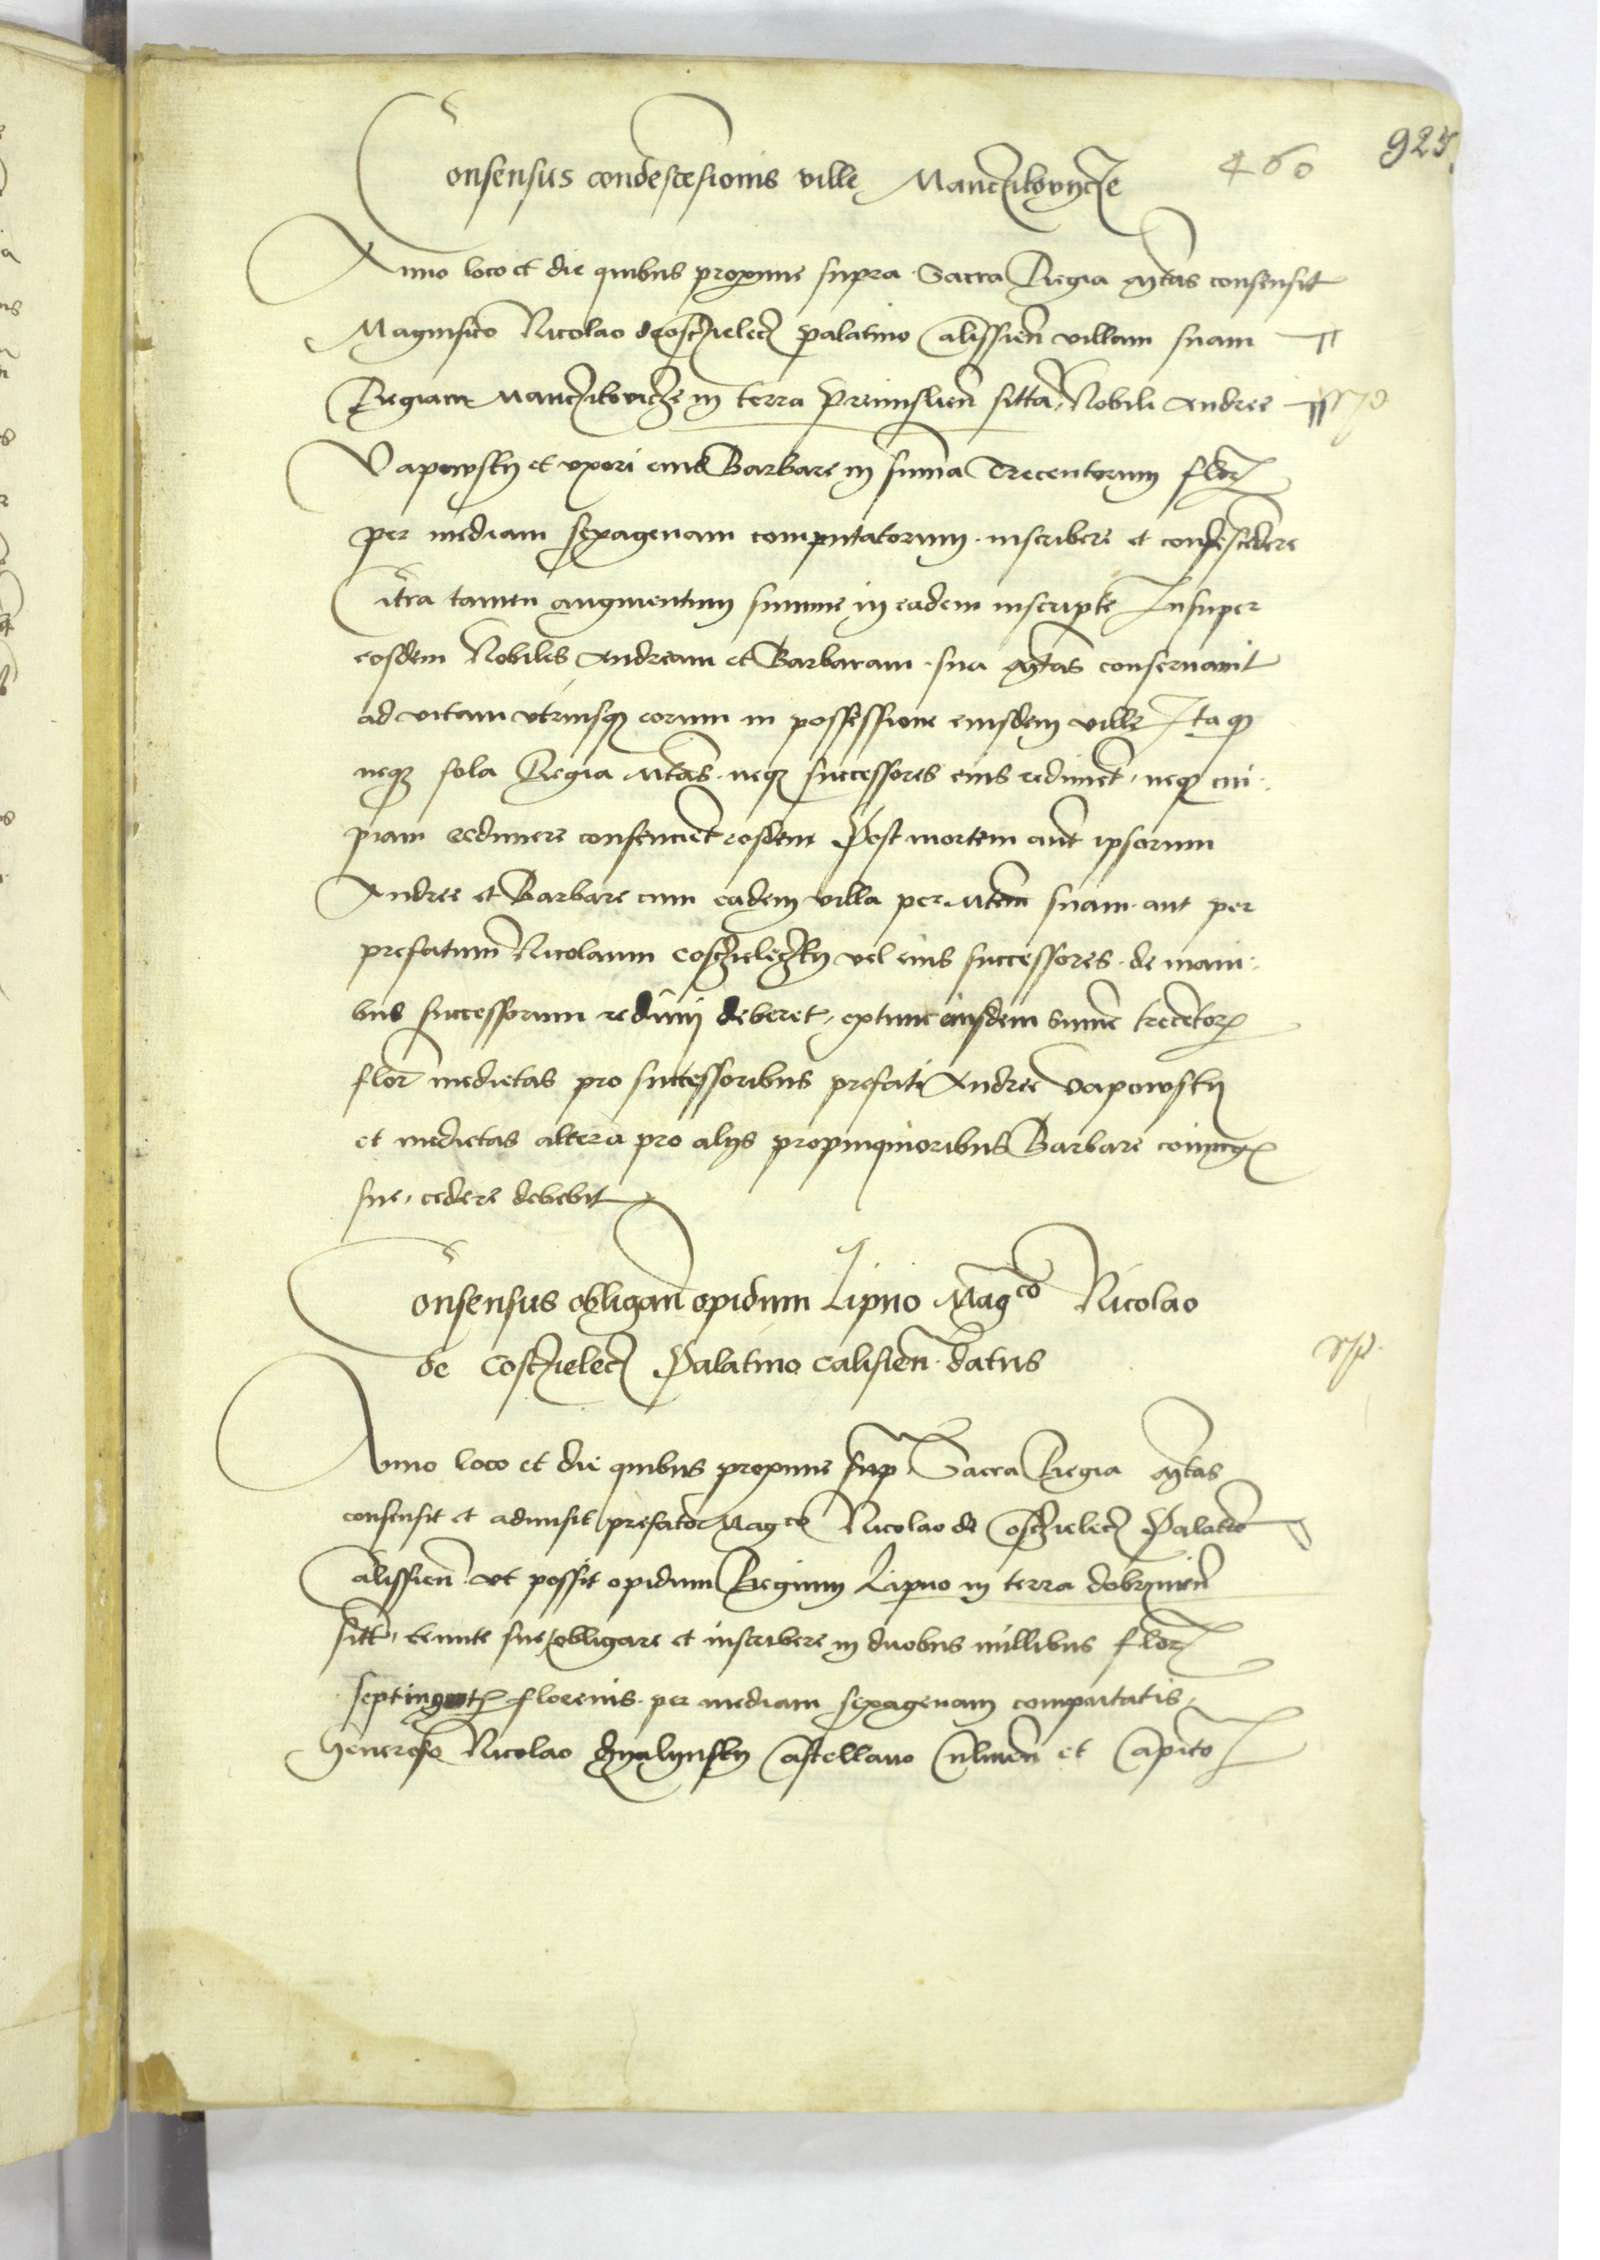 460 925
Consensus condescesionis ville Manczilovycze
Anno loco et die quibus proxime supra Sacra Regia Mtas consensit
Magnifico Nicolao de Coszczielecz palatino Calissien villam suam
Regiam Manczilovicze in terra Premislien sitta, Nobili Andree
Vapowsky et vxori eius Barbare in summa Trecentorum flor
per mediam sexagenam computatorum inscribere et condescedere
Citra tamen augmentum summe in eadem inscripte Insuper
eosdem Nobiles Andream et Barbaram sua Mtas conservavit
ad vitam vtriusq eorum in possessione eiusdem ville Ita q
neq sola Regia Mtas neq successores eius rediment, neq cui
piam redimere consencient eosdem Post mortem aut ipsorum
Andree et Barbare cum eadem villa per Mtem suam aut per
prefatum Nicolaum Coszczieleczky vel eius successores de mani
bus successorum redimi deberet, extunc eiusdem summe trecentor
flor medietas pro successoribus prefati Andree Vapowsky
et medietas altera pro alys propinquioribus Barbare coniugis
sue, cedere debebit
Consensus obligan opidum Lipno Magco Nicolao
de Coszczielecz Palatino Calisien datus
Anno loco et die quibus proxime sup Sacra Regia Mtas
consensit et admisit prefato Magco Nicolao de Coszczielecz Palatio
Calissien vt possit opidum Regium Lipno in terra dobrinien
sitt, tenute sue, obligare et inscribere in duobus millibus flor
septingentis florenis per mediam sexagenam computatis,
Generoso Nicolao Dzyalynsky Castellano Culmen et Capito